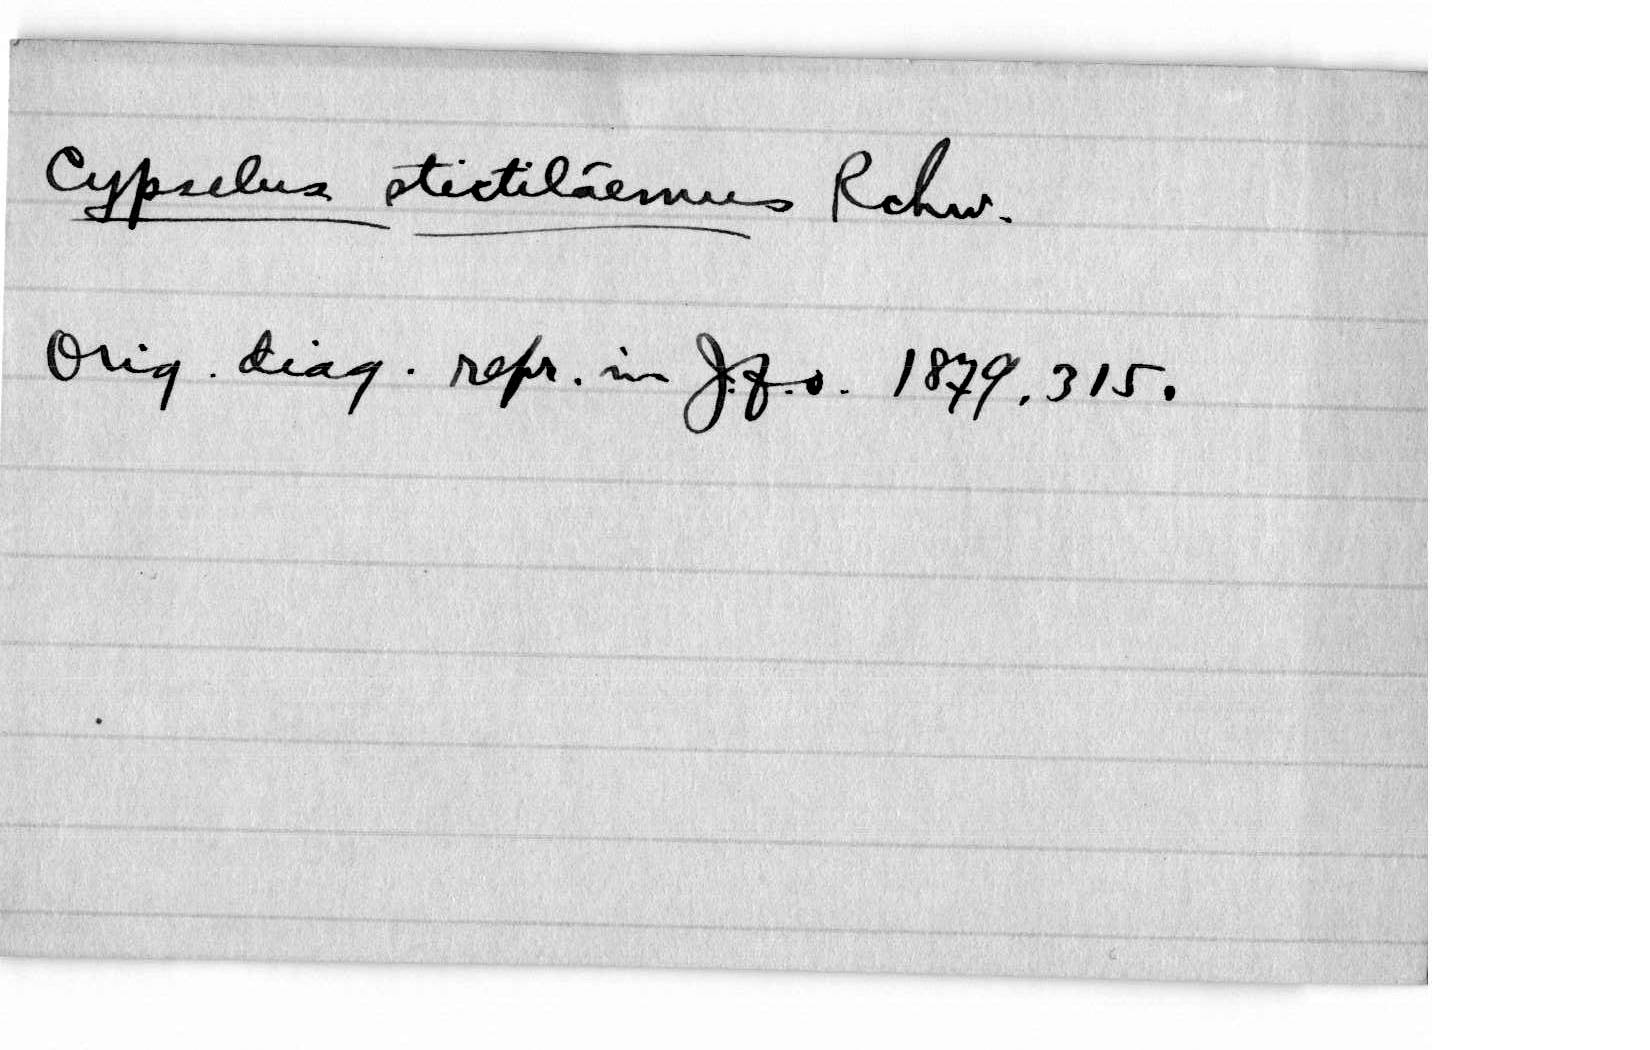 Cypselus stictilāemus Rchw.
Orig. diag. repr. in J.f.o. 1879, 315.